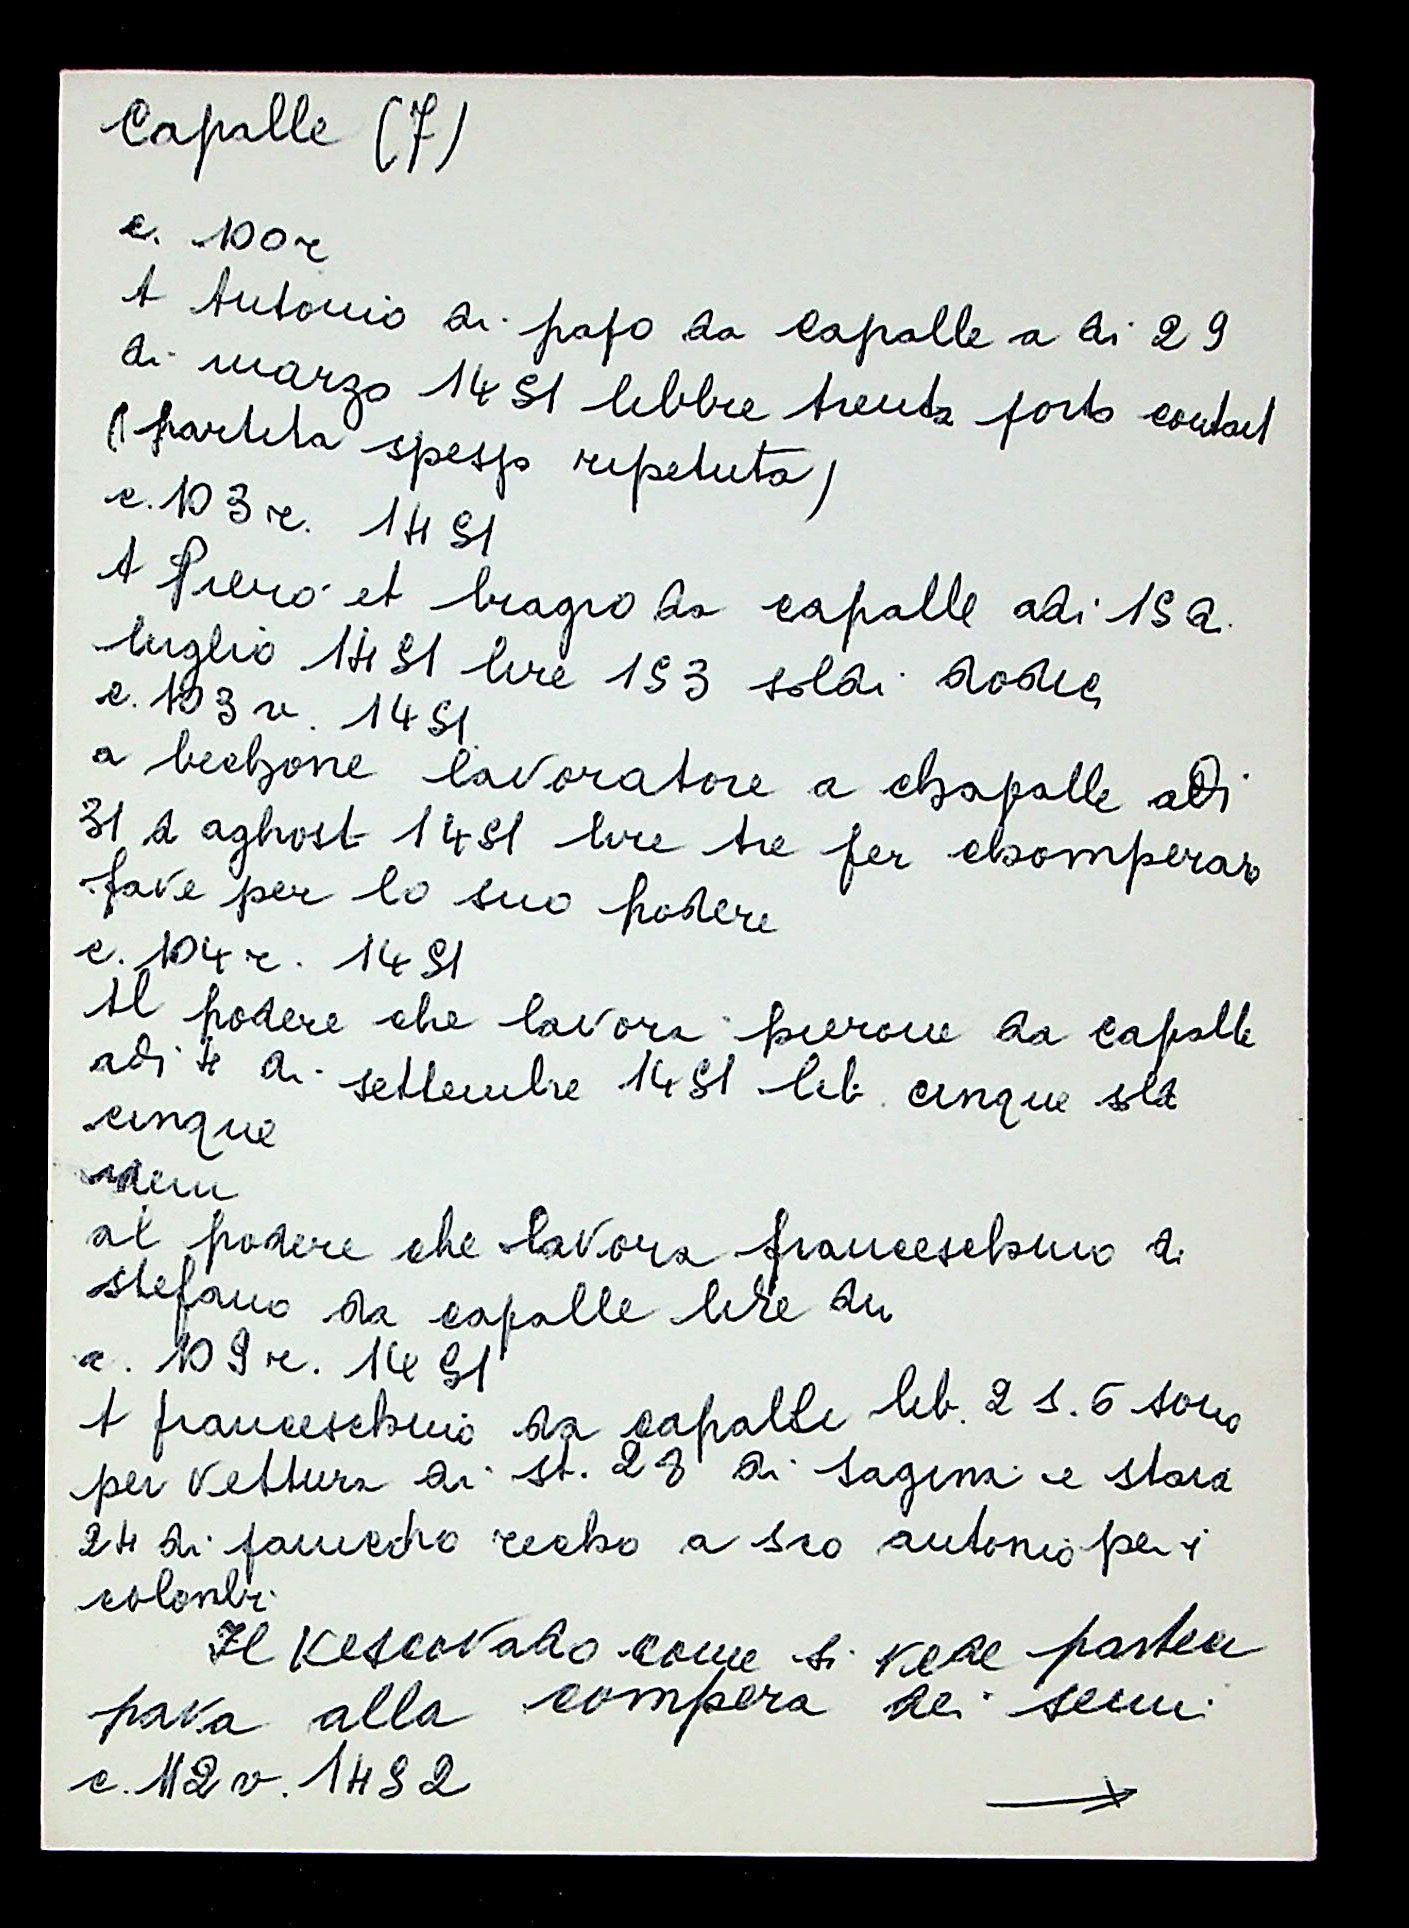 Capalle (7)
c. 100r
A Antonio di papo da Capalle a di 29
di marzo 1451 libbre trenta portò contati
(partita spesso ripetuta)
c. 103r. 1451
A Piero et biagio da capalle adi 15 di
luglio 1451 lire 153 soldi dodici
c. 103v. 1451
a bechone lavoratore a chapalle adi
31 d aghosto 1451 lire tre per chomperare
fave per lo suo podere
c. 104r. 1451
Al podere che lavora pierone da capalle
adi 4 di settembre 1451 lib. cinque sld
cinque
idem
al podere che lavora franceschino di
stefano da capalle lire du
c. 109r. 1451
A franceschino da capalle lib. 2 s. 5 sono
per vettura di st. 28 di sagina e staia
24 di recho a sro antonio per i
colonbi
Il Vescovado come si vede parteci
pava alla compera dei semi
c. 112v. 1452